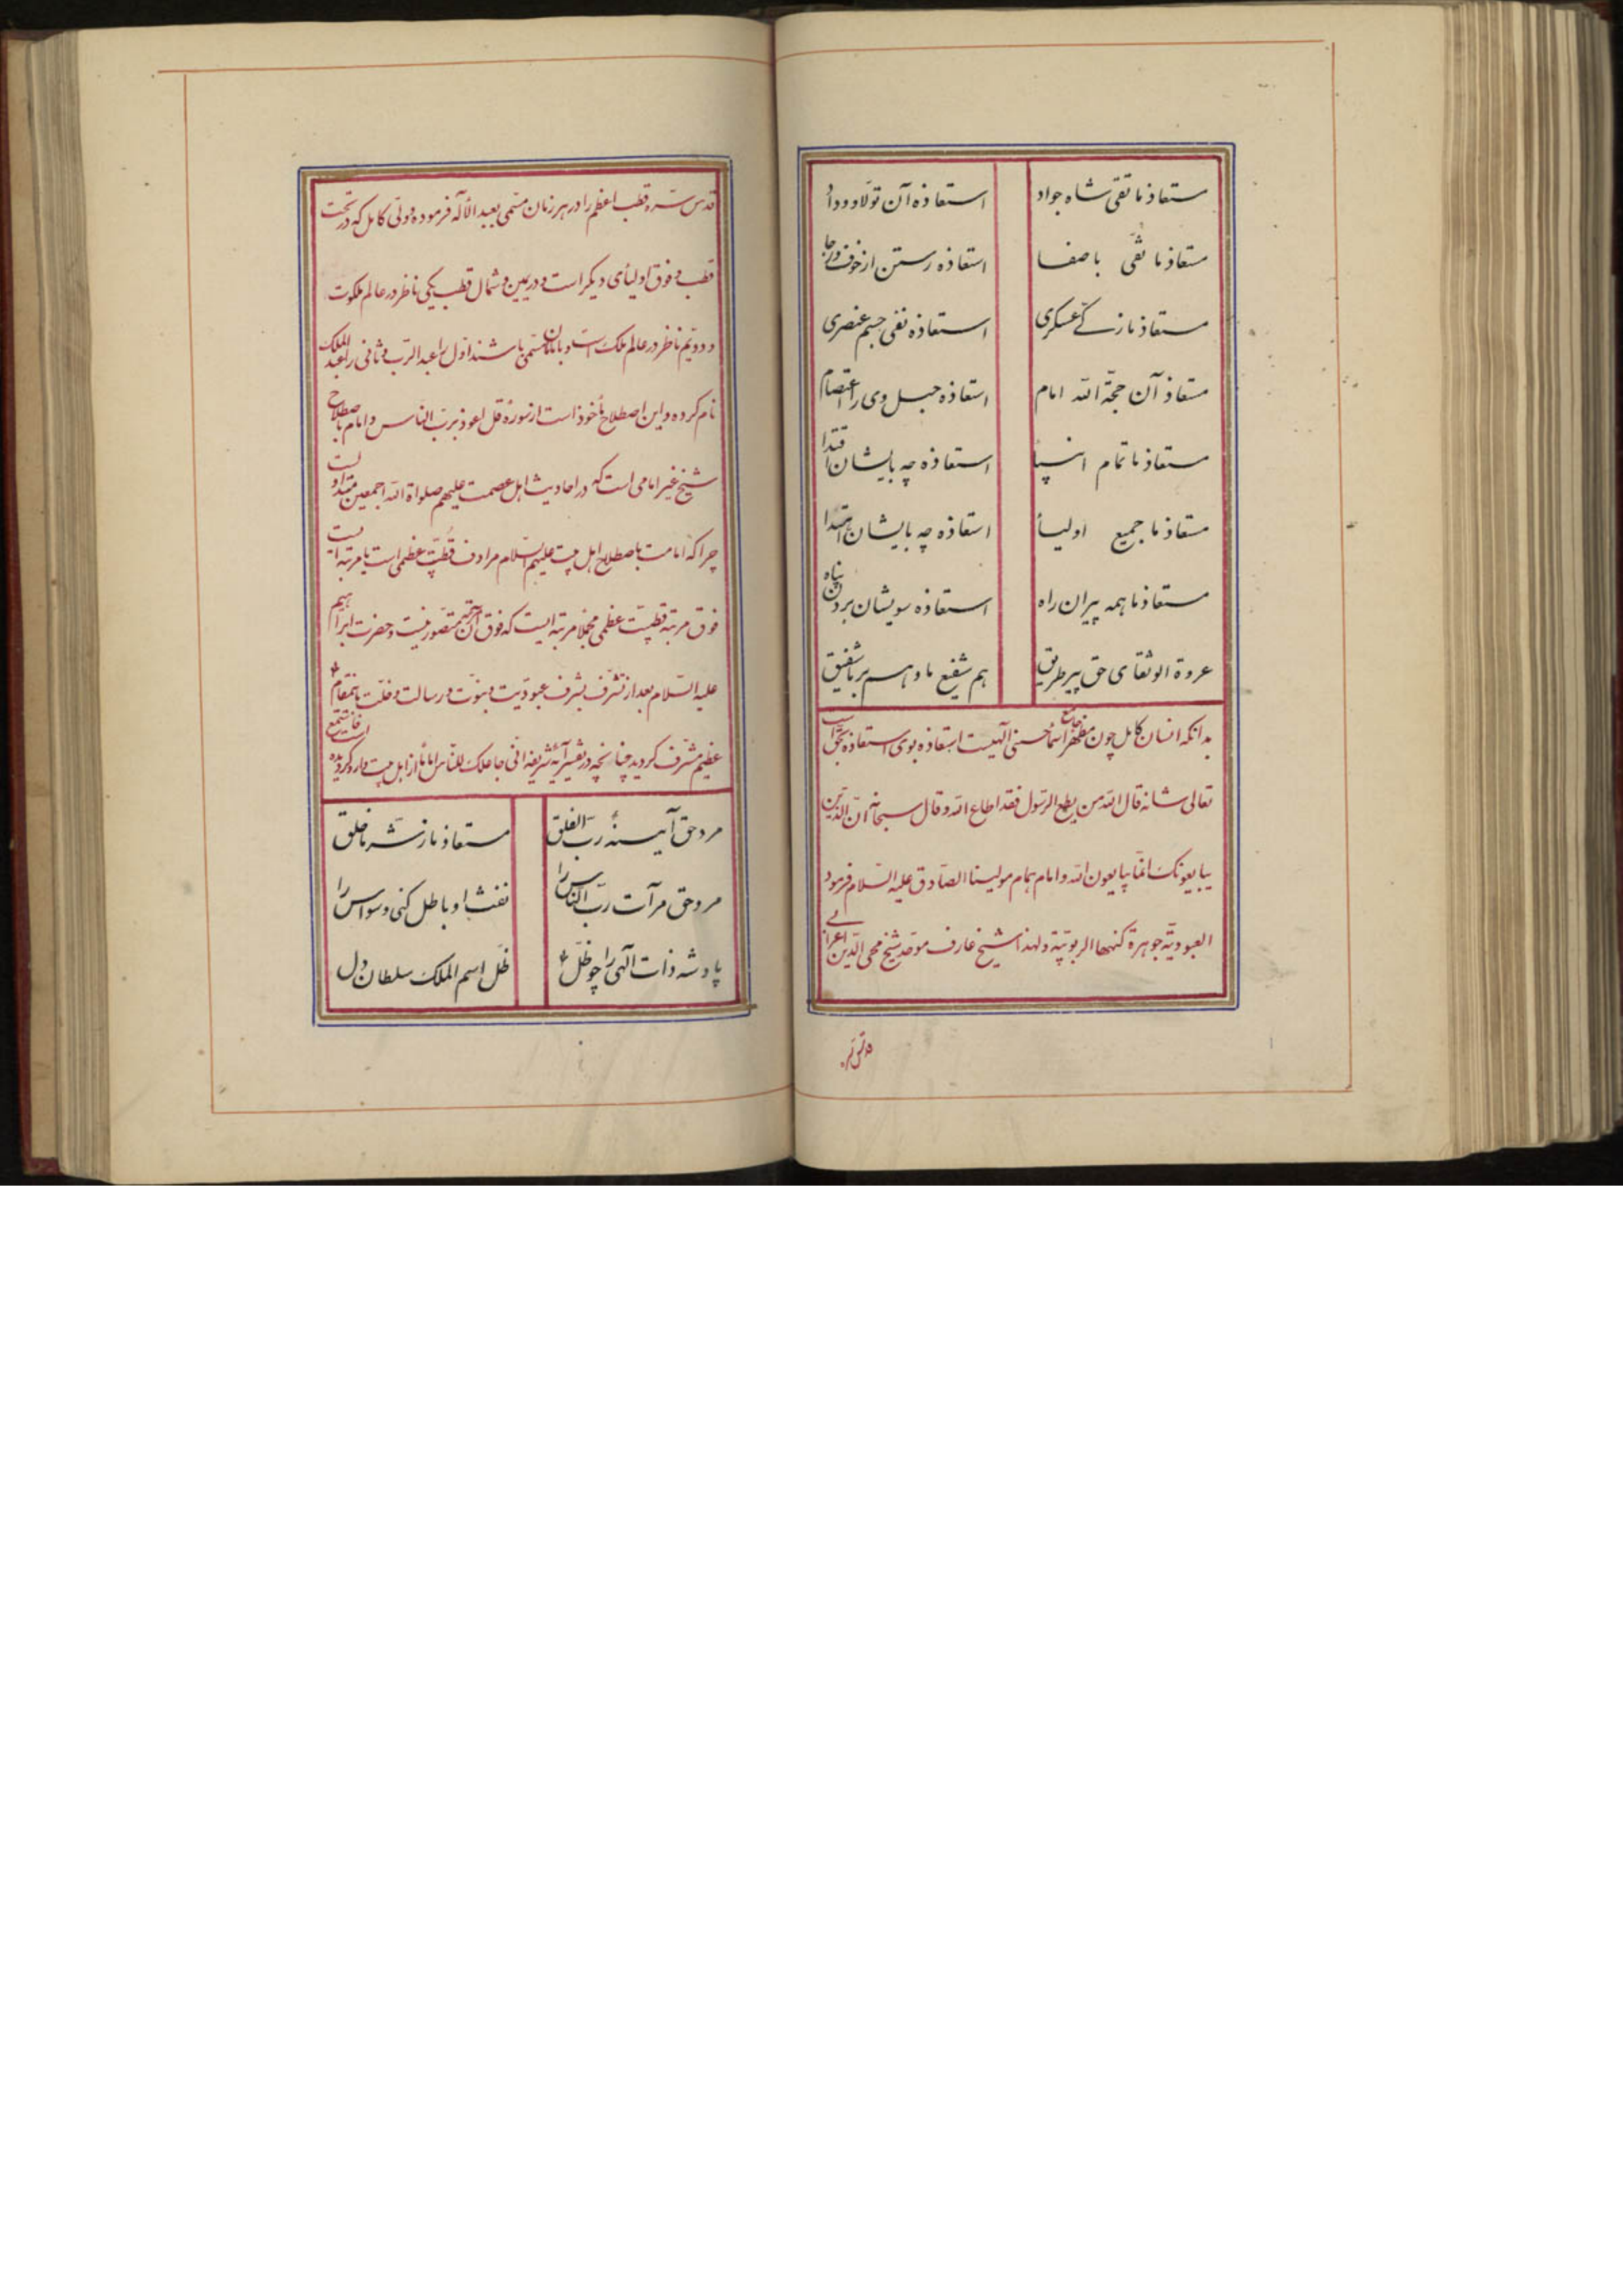 مستعاذ ما تقی شاه جواد استعاذه آن تولّا و وداد
مستعاذ ما نقی با صفا استعاذه رستن از خوف و رجا
مستعاذ ما زکی عسکری استعاذه نفی جسم عنصری
مستعاذ آن حجّة الله امام استعاذه حبل وی را اعتصام
مستعاذ ما تمام انبیا استعاذه چه بایشان اقتدا
مستعاذ ما جمیع اولیأ استعاذه چه بایشان اهتدا
مستعاذ ما همه پیران راه استعاذه سویشان بردن پناه
عروة الوثقای حق پیر طریق هم شفیع ما و هم بر ما شفیق
بدانکه انسان کامل چون مظهر جامع اسمأ حسنی آلهیست استعاذه بوی استعاذه بحق است
تعالی شانه قال الله من یطع الرّسول فقد اطاع الله و قال سبحانه انّ الّذین
یبایعونک انّما یبایعون الله و امام همام مولینا الصّادق علیه السّلام فرمود
العبودیّة جوهرة کنهها الربوبیّة و لهذا شیخ عارف موحّد شیخ محی الدّین اعرابی
قدّس سرّه
قدّس سرّه قطب اعظم را در هر زمان مسمّی بعبد الأله فرموده و ولّی کامل که در تحت
قطب و فوق اولیأی دیکر است و در یمین و شمال قطب یکی ناظر در عالم ملکوت
و دویّم ناظر در عالم ملک است و بامامان مسمّی باشند اوّل را عبد الرّب و ثانی را عبد الملک
نام کرده و این اصطلاح مأخوذ است از سورهٔ قل اعوذ بربّ النّاس و امام باصطلاح
شیخ غیر امامی است که در احادیث اهل عصمت علیهم صلواة الله اجمعین متداولست
چرا که امامت باصطلاح اهل بیت علیهم السّلام مرادف قطبیّت عظمی است یا مرتبه ایست
فوق مرتبه قطبیّت عظمی مجملا مرتبه ایست که فوق آن مرتبه متصوّر نیست و حضرت ابراهیم
علیه السّلام بعد از تشرّف بشرف عبودیّت و نبوّت و رسالت و خلّت باینمقام
عظیم مشرّف کردید چنانچه در تفسیر آیهٔ شریفه انّی جاعلک للنّاس اماما از اهل بیت وارد کردیده است
مرد حق آیینهٔ ربّ الفلق مستعاذ ما ز شرّ ما خلق
مرد حق مرآت ربّ النّاس را نفث او باطل کنی وسواس را
پادشه ذات آلهی را چو ظلّ ظلّ اسم الملک سلطان دل